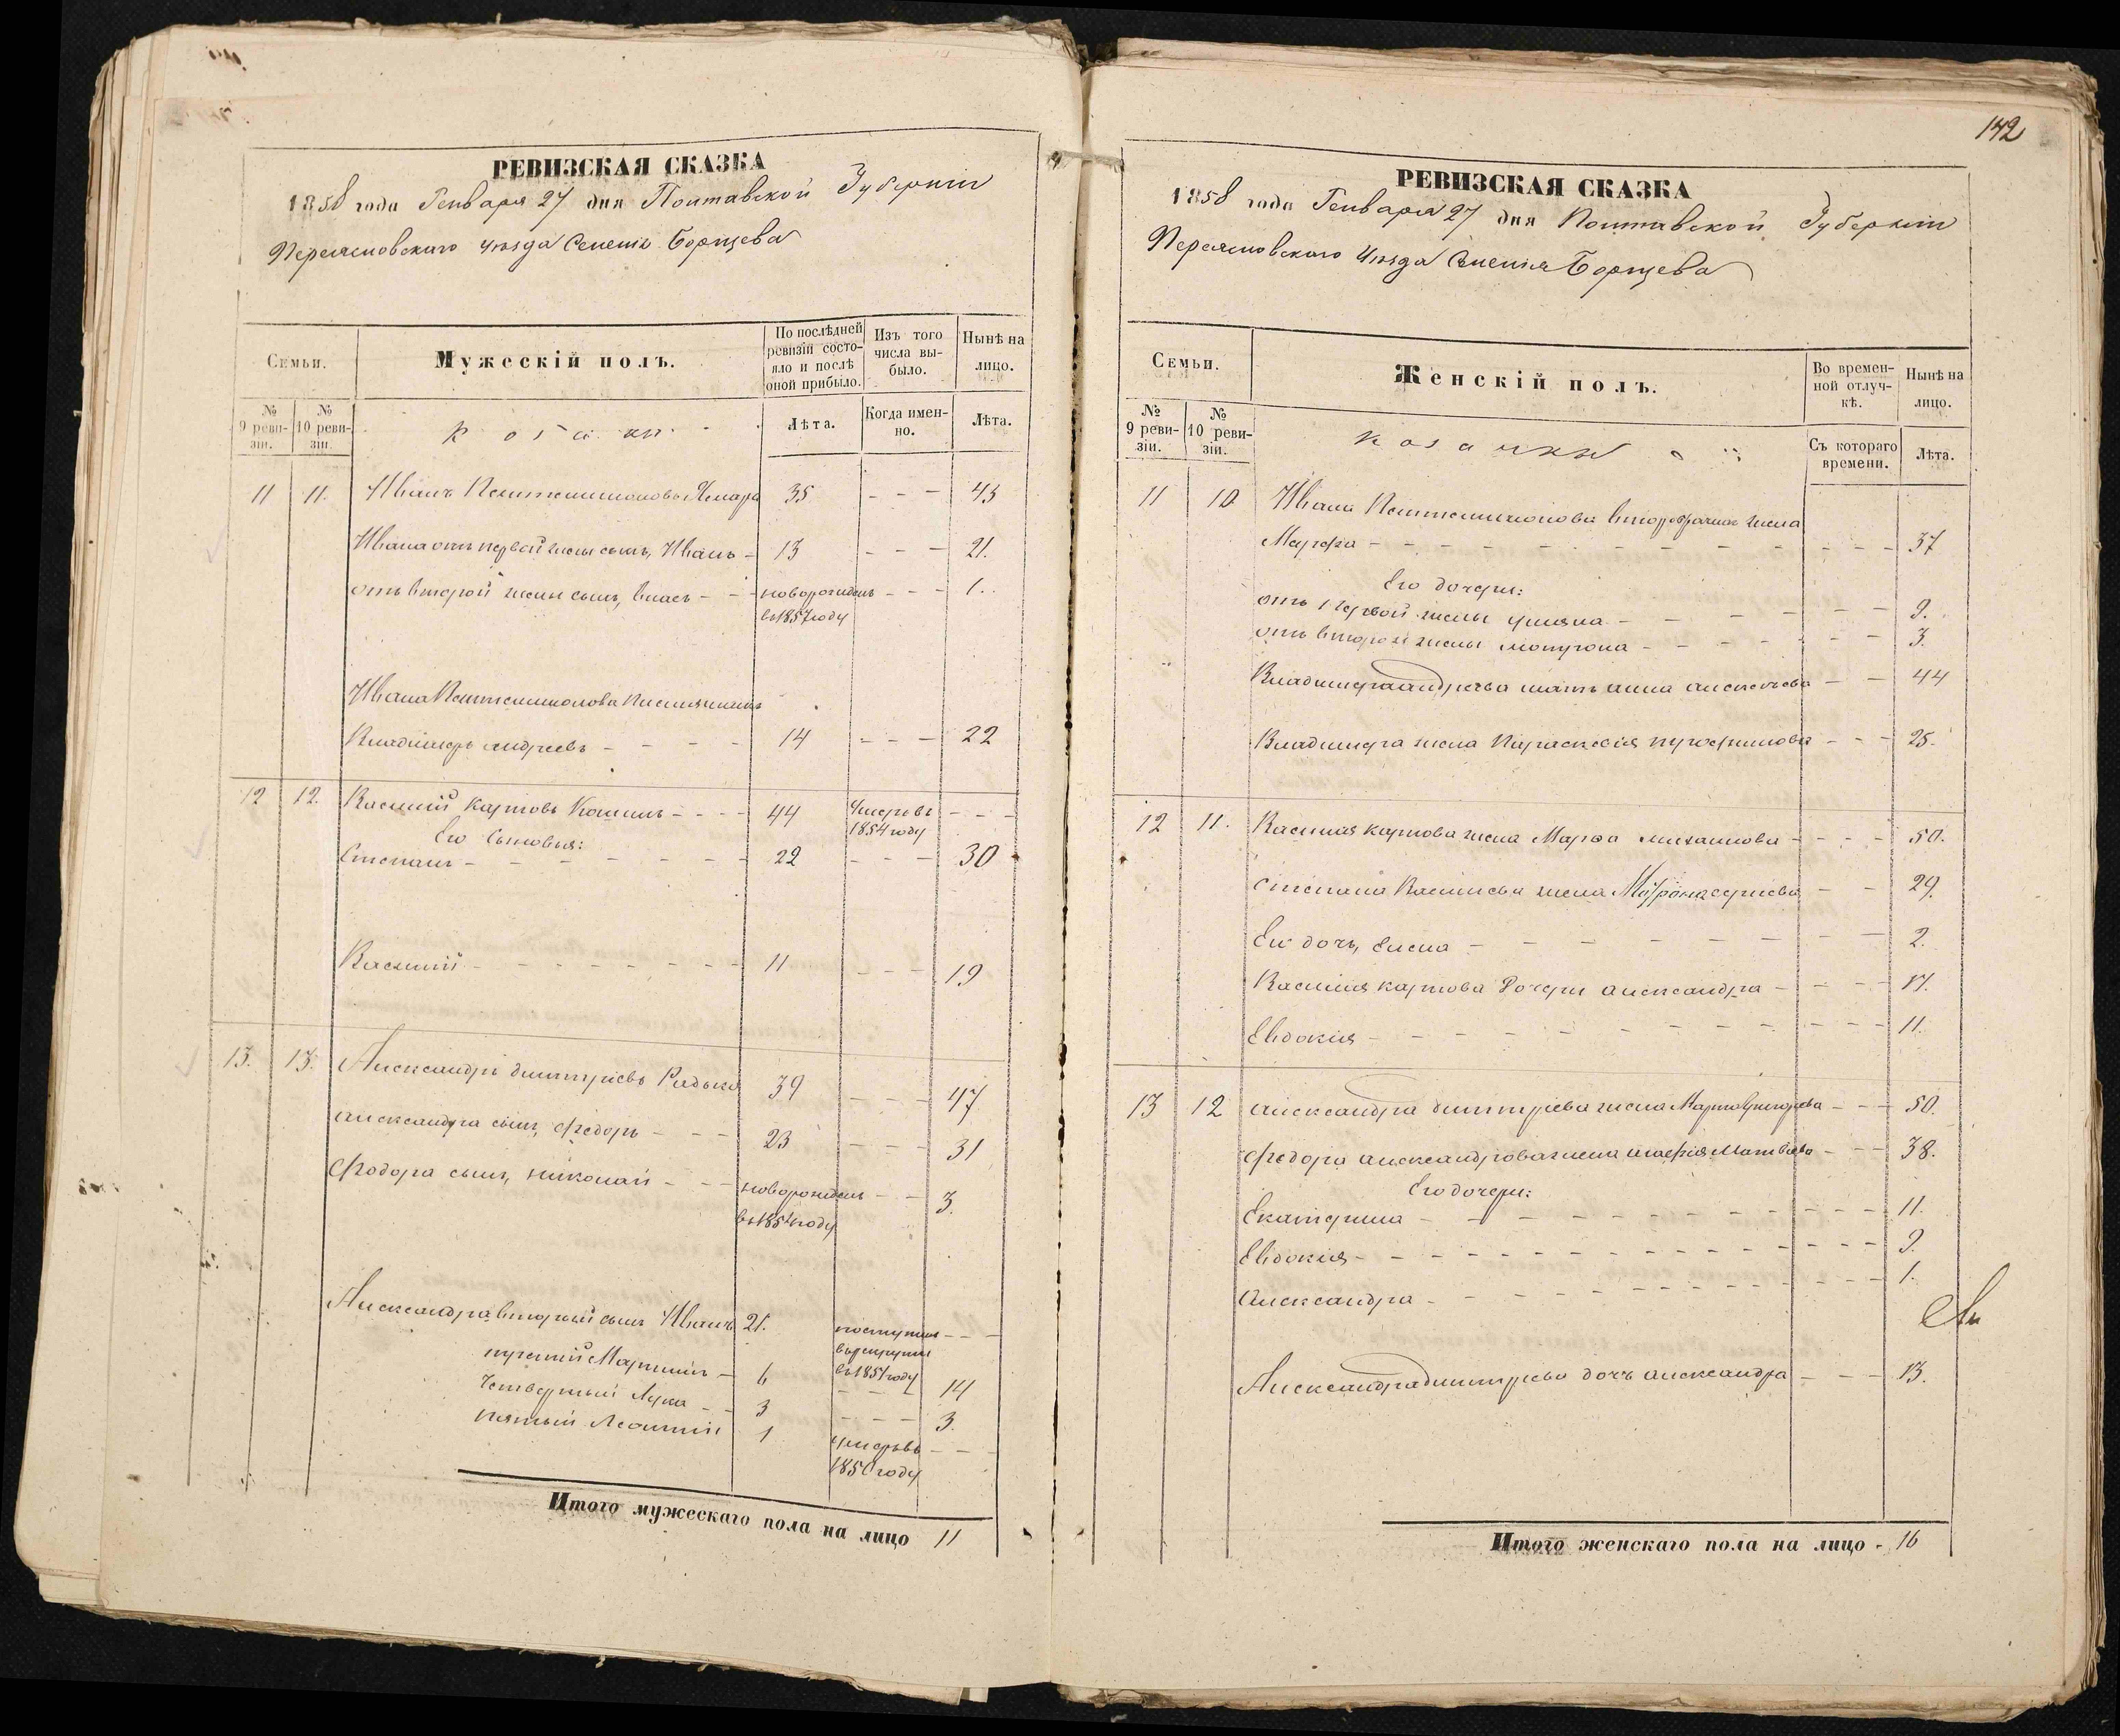 РЕВИЗСКАЯ СКАЗКА
1858 года Генваря 27 дня Полтавской Губерніи
Переясловского Уезда Селенія Борщева
Семьи.
Мужескій полъ.
По послѣдней ревизіи состояло и послѣ оной прибыло.
Изъ того числа выбыло.
Нынѣ на лицо.
№ 9 ревизіи.
№ 10 ревизіи.
Козаки
Лѣта.
Когда именно.
Лѣта.
11 11. Иванъ Пантелимоновъ 35 - - - 43
Ивана отъ первой жены сынъ, Иванъ - 13 - - - 21.
отъ второй жены сынъ, Власъ - - - новорожденъ - - - 1.
въ 1857 году
Ивана Пантелимонова племянникъ
Владимеръ андреевъ - - - - 14 - - - 22
12 12. Василий Карповъ - - - - 44 Умеръ въ - - -
1854 году
Его Сыновья:
Степанъ - - - - - - - 22 - - - 30
Василий - - - - - - - 11 - - - 19
13. 13. Александръ дмитріевъ Радька 39 - - - 47
александра сынъ, Федоръ - - - 23 - - - 31
Федора сынъ, николай - - - новорожденъ - - 3.
въ 1854 году
Александра вторый сынъ Иванъ 21. поступилъ - - -
в рекруты
въ 1854 году
третий Мартинъ - 6 - - - 14
Четвертый Лука - - 3 - - - 3.
пятый Леонтий 1 умеръ въ - - -
1850 году
Итого мужескаго пола на лицо 11
142
РЕВИЗСКАЯ СКАЗКА
1858 года Генваря 27 дня Полтавской Губерніи
Переясловского Уезда Селенія Борщева
Семьи.
Женскій полъ.
Во временной отлучкѣ.
Нынѣ на лицо.
№ 9 ревизіи.
№ 10 ревизіи.
Козачки
Съ котораго времени.
Лѣта.
11 10 Ивана Пантелимонова второбрачная жена
Марфа - - - - - - - - - - - 37
Его дочери:
отъ первой жены улияна - - - - - 9.
отъ второй жены мотрона - - - - - 3.
Владимера андреева мать анна алексеева - - 44
Владимера жена Параскевия трофимова - - - 25.
12 11. Василия карпова жена Марфа михаилова - - - - 50.
Степана Васильева жена Матрона сергиева - - 29.
Ея дочь, елена - - - - - - - 2.
Василия карпова Дочери александра - - - - 17.
Евдокия - - - - - - - - - - - 11.
13 12 александра дмитриева жена Марта григорева - - - 50.
Федора александрова жена агафия Матвеева - - - 38.
Его дочери:
Екатерина - - - - - - - - - - 11.
Евдокия - - - - - - - - - - - 9.
Александра - - - - - - - - - 1.
Александра дмитриева дочь александра - - - 13.
Итого женскаго пола на лицо - 16